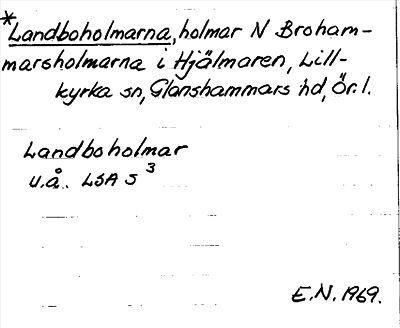 *Landboholmarna, holmar N Broham-
marsholmarna i Hjälmaren, Lill-
kyrka sn, Glanshammars hd, Ör. l.
Landboholmar
u.å. LSA S 3
E.N. 1969.